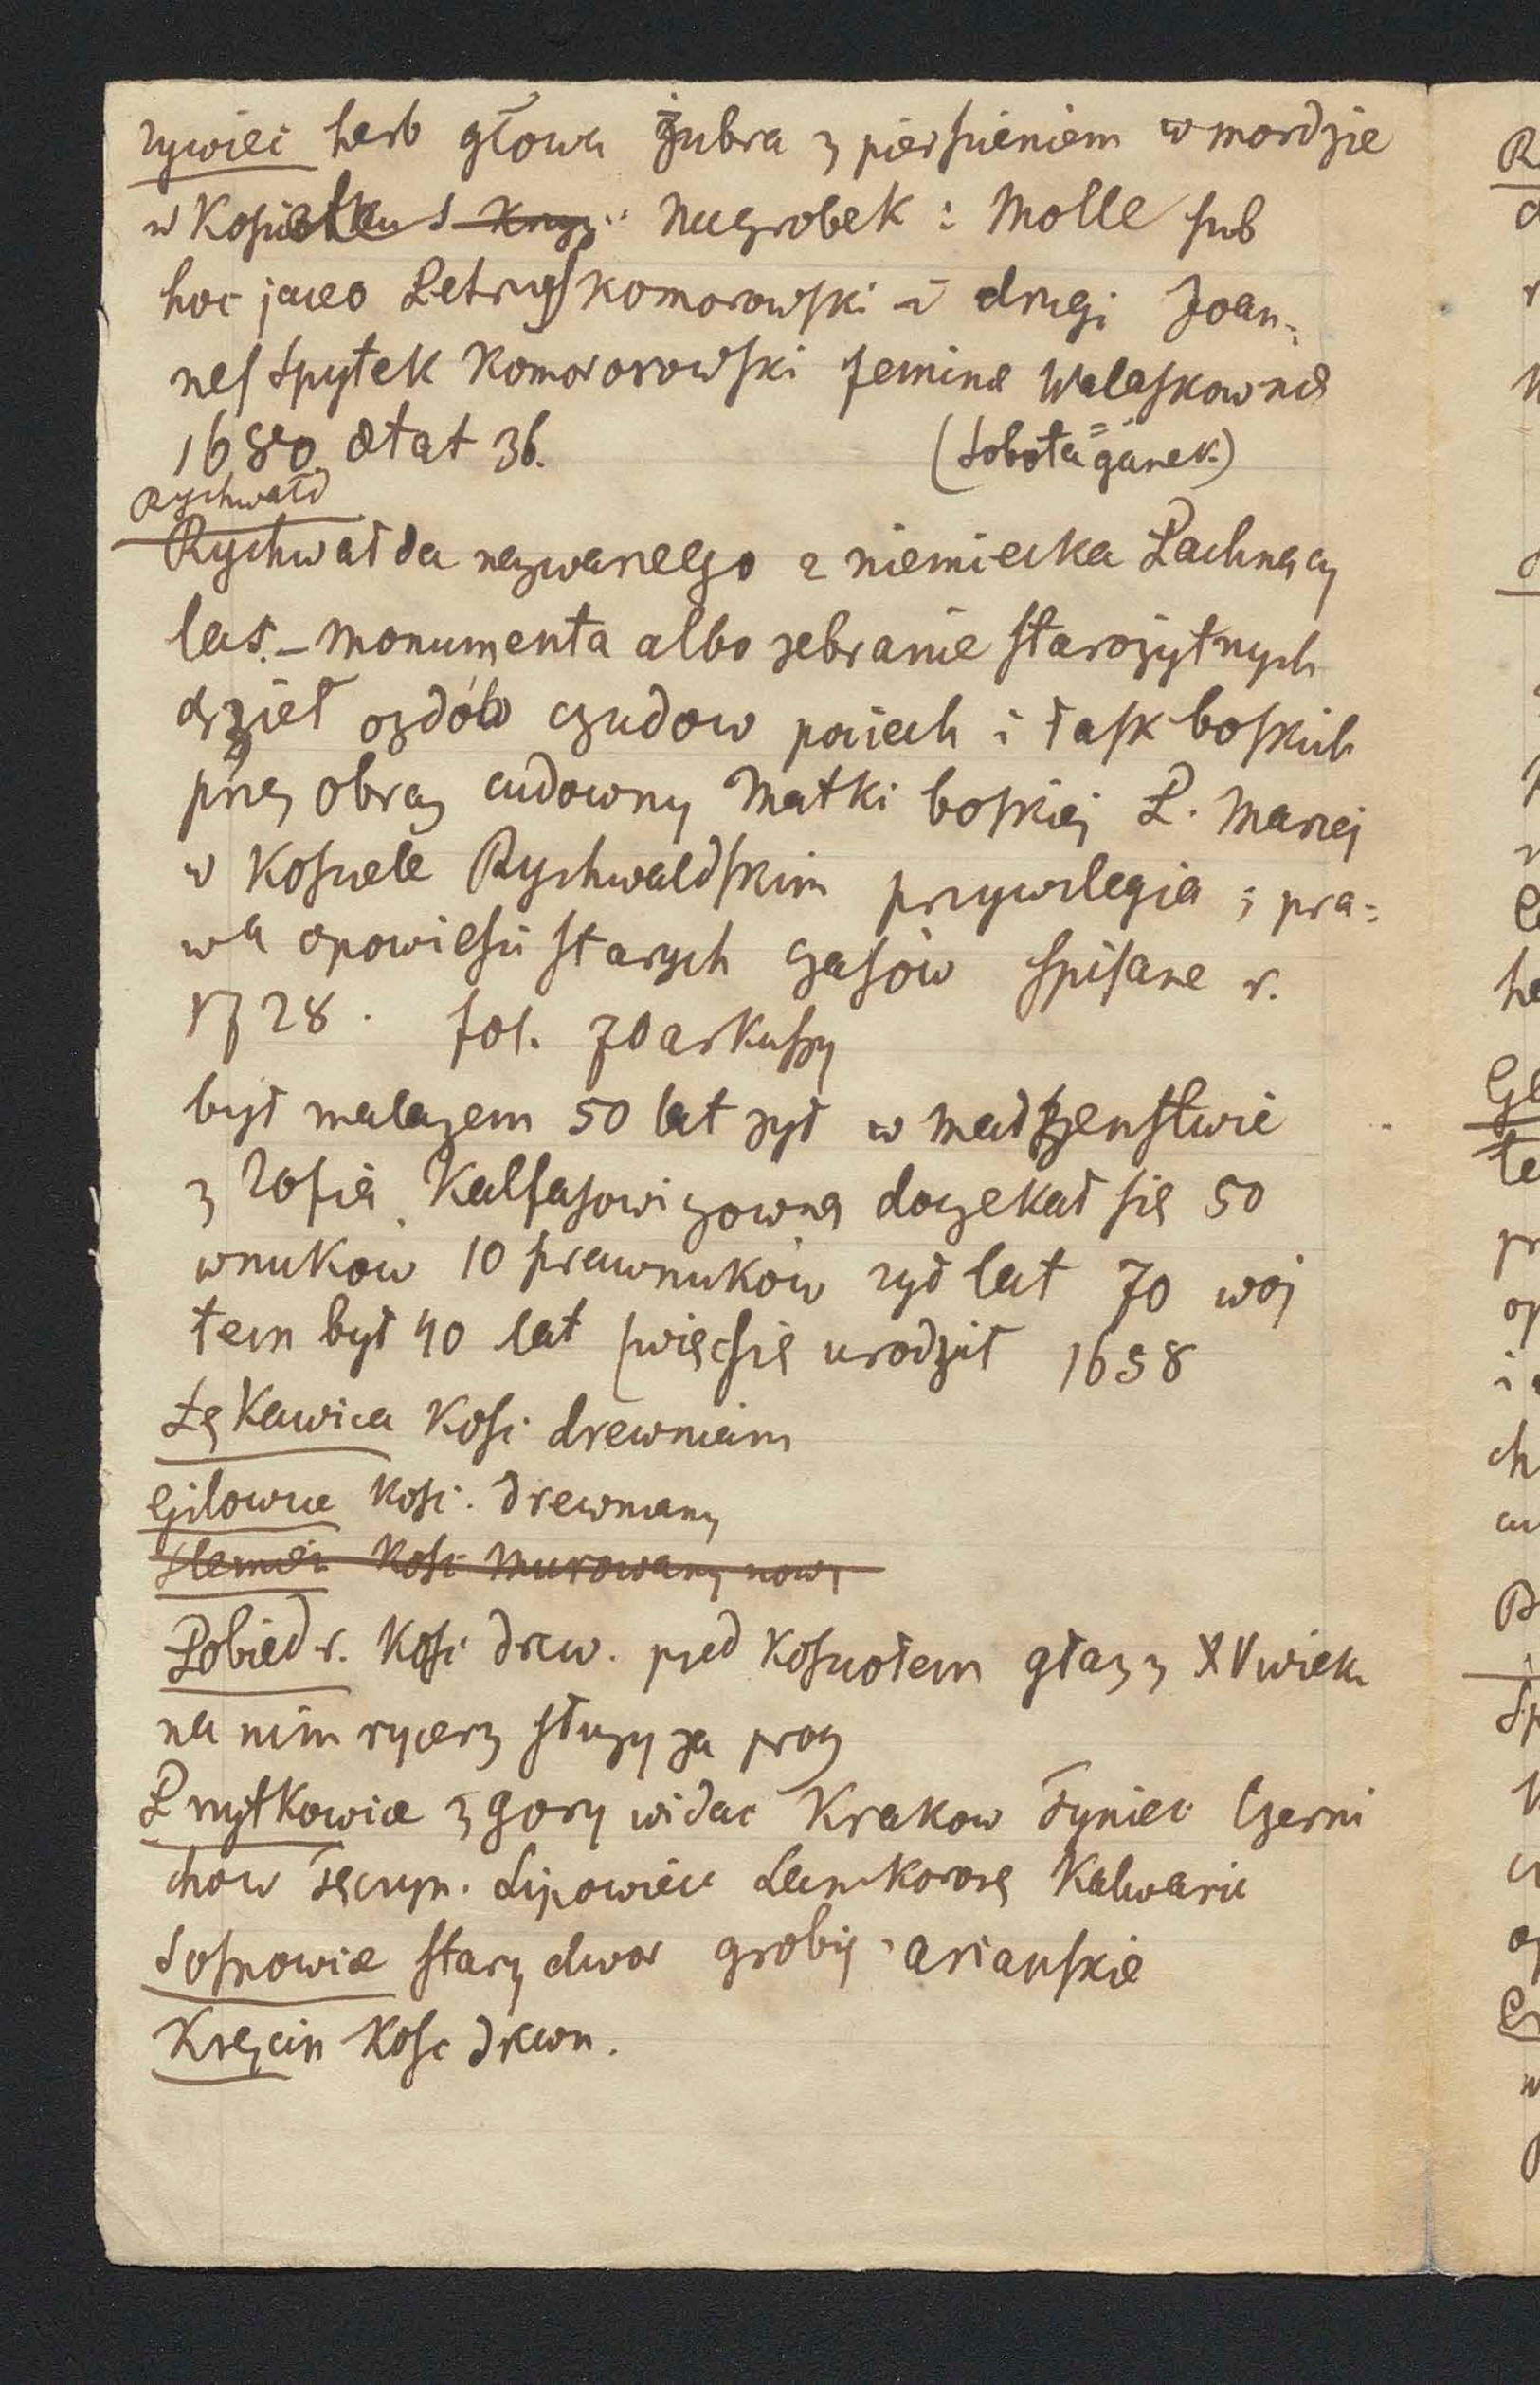 Zywiec herb głowa żubra z pierścieniem w mordzie
w Kościołku S Krzyż Nagrobek : Molle sub
hoc jaceo Petrus Komorowski i drugi Joan-
nes Spytek Komororowski femina Walaskowna
1680 ætat 36. (Sobota = ganek.)
Rychwałd
Rychwałda nazwanego z niemiecka Pachnący
las. - Monumenta albo zebranie starożytnych
dzieł ozdób czudow pociech i łask boskich
przez obraz cudowny Matki boskiej P. Mariej
w Kościele Rychwaldskim przywilegia i pra-
wa opowieści starych czasów spisane r.
1728. fol. 70 arkuszy
był malarzem 50 lat zył w małżenstwie
z Zofią Kalfasowiczowną doczekał się 50
wnukow 10 prawnuków zył lat 70 woj
tem był 40 lat (więc się urodził 1658
Łękawica Kośc drewniany
Gilowice Kośc. drewniany
Slemień Kośc Murowany nowy
Pobiedr. Kośc drew. przed Kosciołem głaz z XV wieku
na nim rycerz słuzy za prog
Przytkowice z gory widac Krakow Tyniec Czerni
chow Tęczyn. Lipowiec Lanckoronę Kalwarie
Sosnowice stary dwor groby arianskie
Kręcin Kosc drewn.